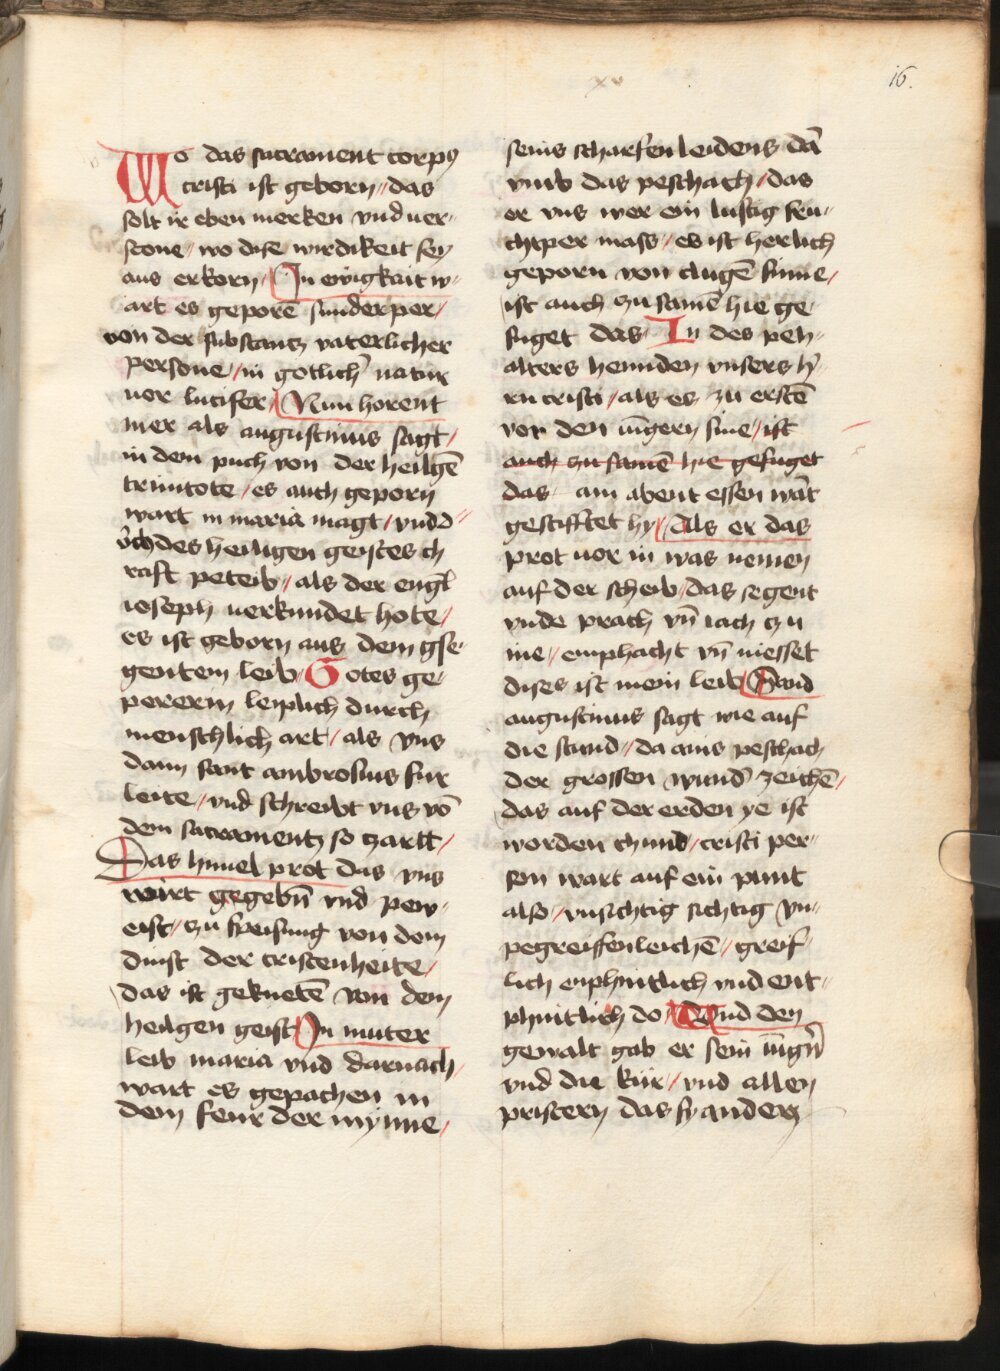 16.
xv
Wo das sacrament corpꝯ
cristi ist geborn / das
solt ir eben merken vnd uer-
stone / wo dise wirdikeit sey
aus erkorn / In ewigkait w-
art es geporē sunderper /
von der substantz vaterlicher
persone / in gotlich̄ natur
vor lucifer / Nun horent
mer als augustinus sagt /
in dem puch von der heilgē
trinitote / es auch geporn
wart in maria magt / vnd d-
urch des heiligen geistes ch
raft peteib / als der engl̄
ioseph uerkundet hote /
es ist geborn aus dem gse-
gentem leib / Gotes ge-
pererin leiplich durch
menschlich art / als vns
dann sant ambrosius fur
leite / vnd schreibt vns vō
dem sacramentz so zartt /
Das himel prot das vns
wirt gegebn̄ vnd pew-
eist / zu speisung von dem
dinst der cristenheite /
das ist geknetē von dem
heilgen geist / In muter
leib maria vnd darnach /
wart es gepachen in
dem feur der mynne /
seins scharfen leidens dā
vmb das peschach / das
er vns wer ein lustig fru-
chtper mass / es ist herlich
geporn von clugē sinne /
ist auch zu samē hie ge-
fuget das / In des peh-
alters henden vnsers h̄-
rn cristi / als es zu erstē
vor den iūgern sine / ist
auch zu samē hie gefuget
das am abent essen wāt
gestifftet hy / Als er das
prot vor in was nemen
auf der scheib / das segent
vnde prach vn̄ iach zu
ine / emphacht vn̄ niesset
dises ist mein leib / Sand
augustinus sagt wie auf
die stund / da ains peschach
der grossen wund̄ zeichē /
das auf der erden ye ist
worden chund / cristi per-
son wart auf ein punt
also / vnsichtig sichtig vn-
pegreiffenleichē / greif-
lich enphintlich vnd ent-
phintlich do / Vnd den
gewalt gab er sein iūgn̄
vnd die kür / vnd allen
pristern das sy anders